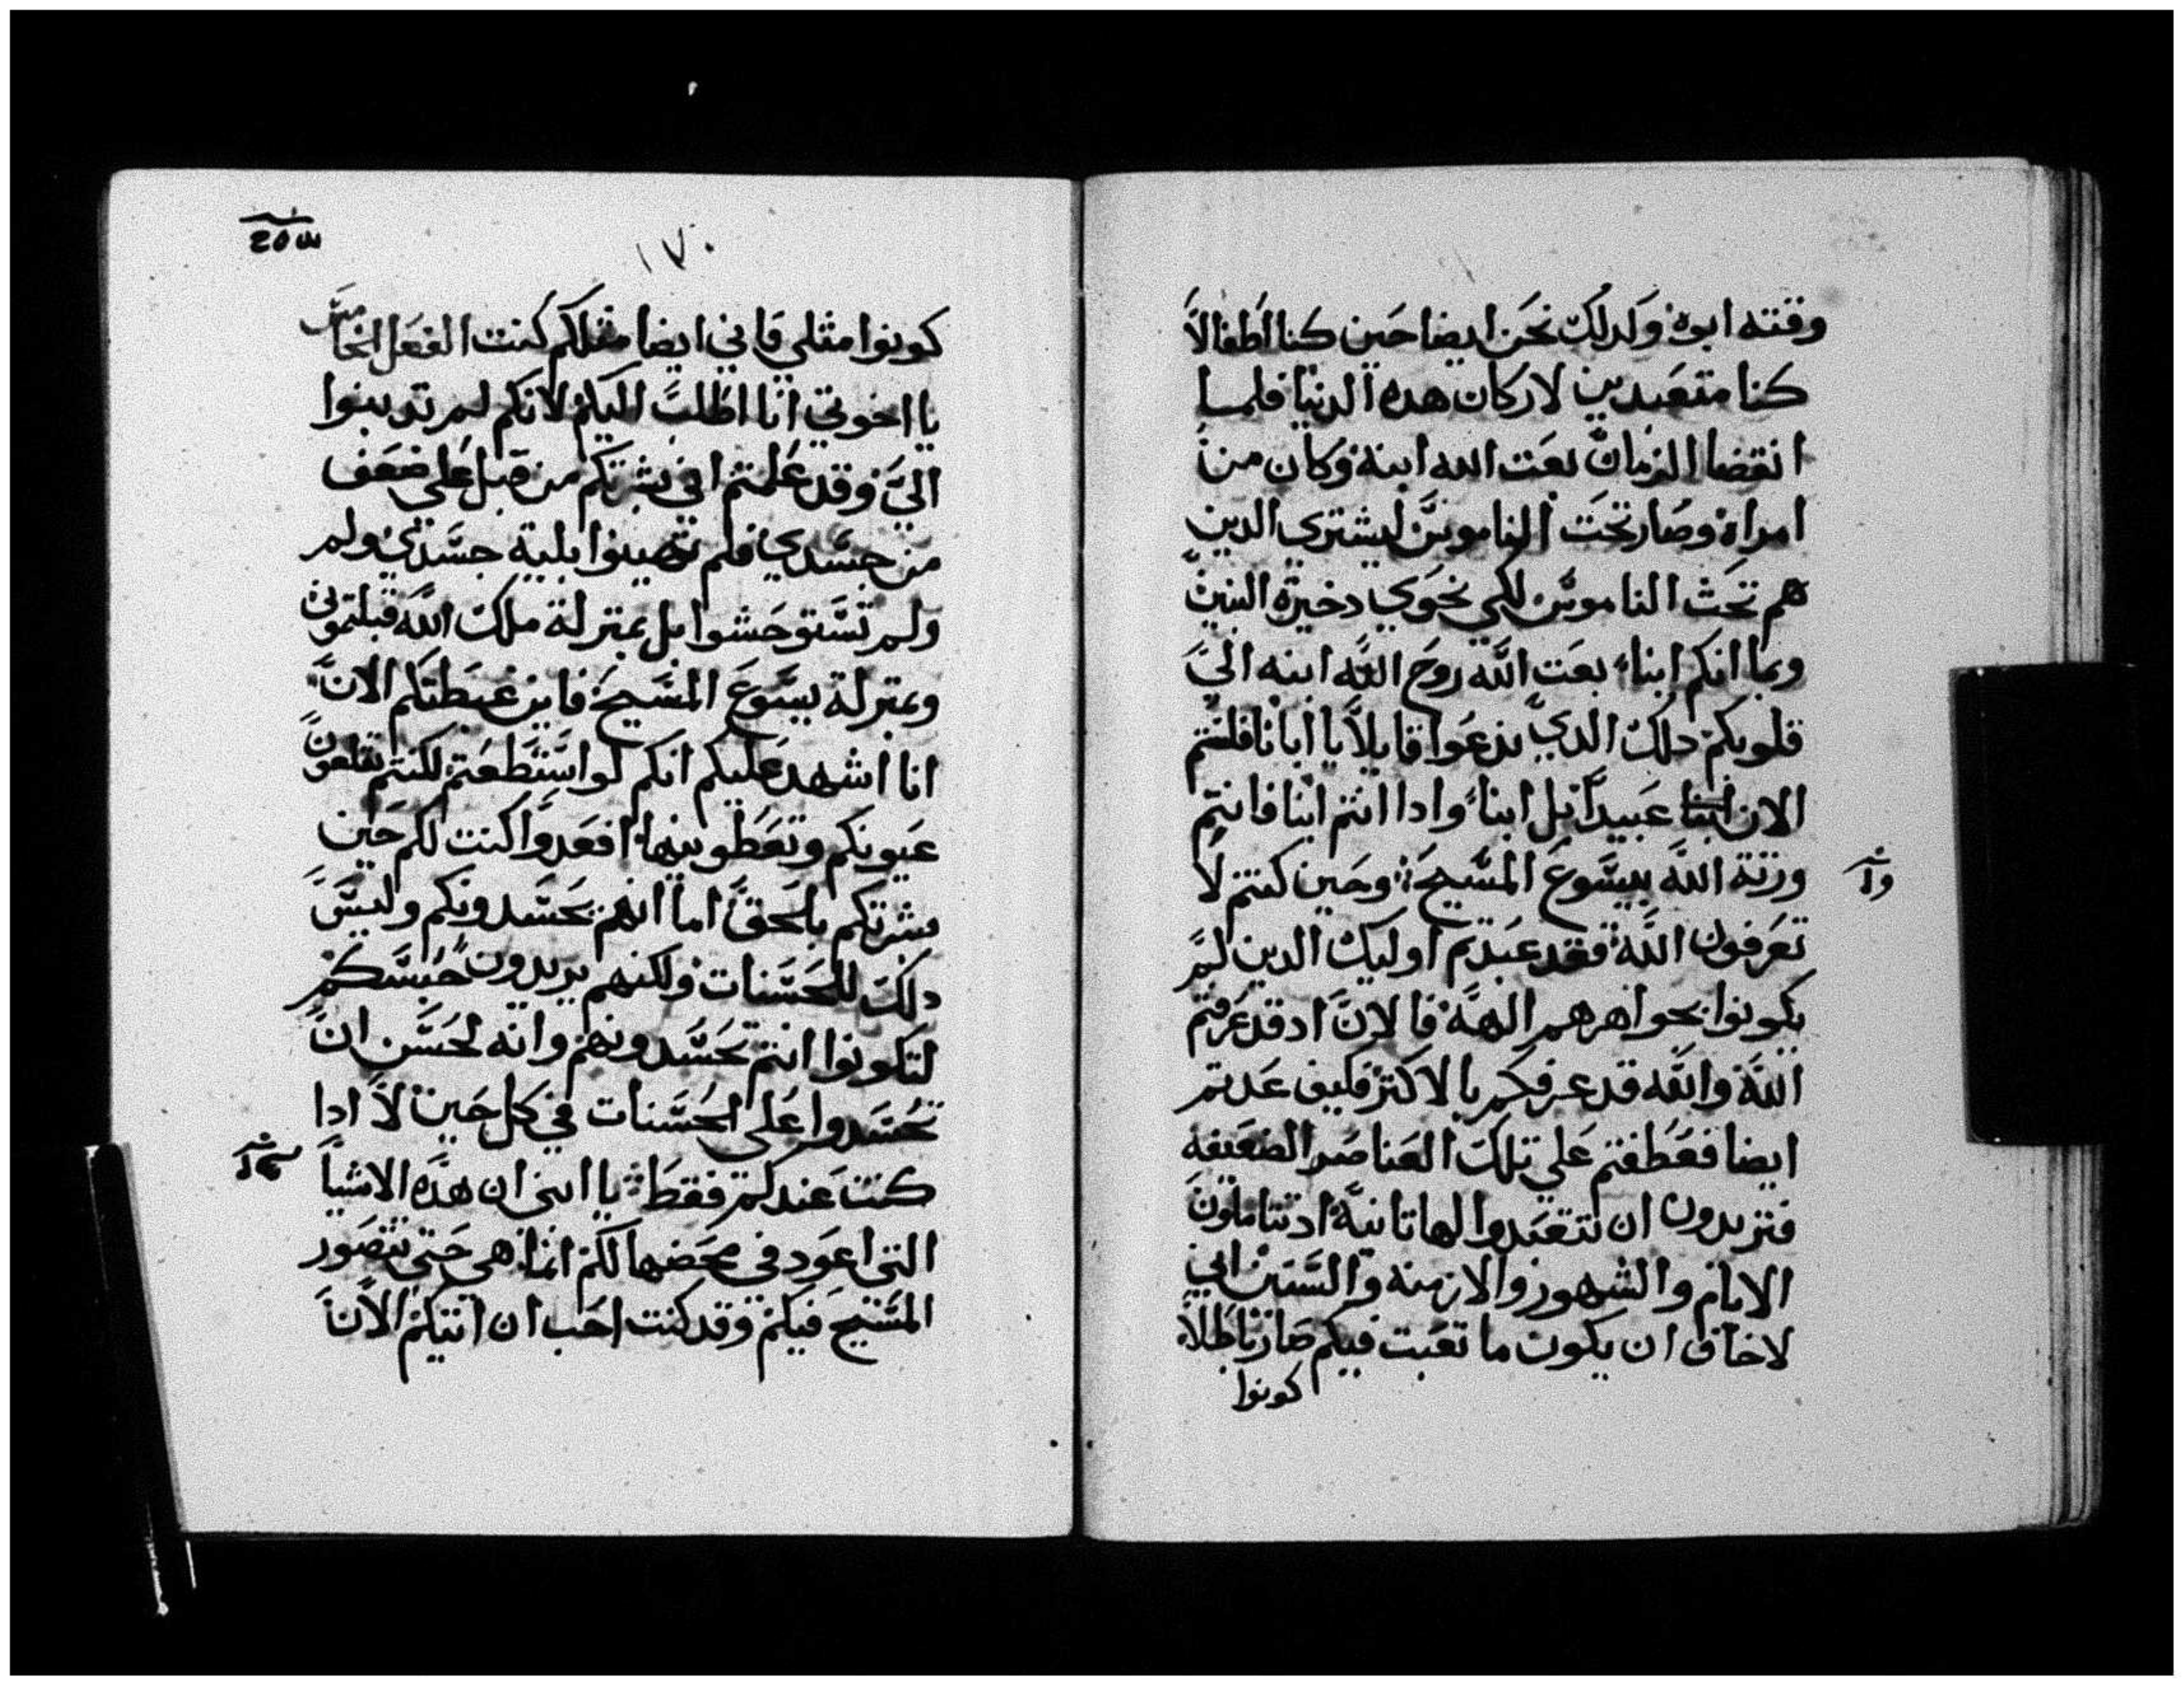 وقته ابوه وكدلك نحن ايضا حين كنا اطفالا
كنا متعبدين لاركان هده الدنيا فلما
انقضا الزمان بعت الله ابنه وكان من
امراة وصار تحت الناموس ليشتري الدين
هم تحت الناموس لكي نحوي دخيرة البنين
وبما انكم ابناء بعت الله روح الله ابنه الي
قلوبكم دلك الدي يدعوا قايلا يا ابانا فلستم
الان ابنا عبيدا بل ابناء وادا انتم ابنا فانتم
ورثة الله بيسوع المسيح وحين كنتم لا
تعرفون الله فقد عبدتم اوليك الدين لم
يكونوا بجواهرهم الهة فالان اد قد عرفتم
الله والله قد عرفكم بالاكتر فكيف عدتم
ايضا فعطفتم علي تلك العناصر الضعيفه
فتريدون ان تتعبدوا لها تانية اد تتاملون
الايام والشهور والازمنه والسنين اني
لاخاف ان يكون ما تعبت فيكم صار باطلا
كونوا
١٧٠
كونوا مثلي فاني ايضا مثلكم كنت الفعل الخامس
يا اخوتي انا اطلب اليكم لانكم لم تدنبوا
الي وقد علمتم اني بشرتكم من قبل علي ضعف
من جسدي فلم تهينوا بلية جسدي ولم
ولم تستوحشوا بل بمنزلة ملاك الله قبلتموني
وبمنزلة يسوع المسيح فاين غبطتكم الان
انا اشهد عليكم انكم لو استطعتم لكنتم تقلعون
عيونكم وتعطونيها افعدوا كنت لكم حين
بشرتكم بالحق اما انهم يحسدونكم وليس
دلك للحسنات ولكنهم يريدون حبسكم
لتكونوا انتم تحسدونهم وانه لحسن ان
تحسدوا على الحسنات في كل حين لا ادا
كنت عندكم فقط يا ابني ان هده الاشيا
التي اعود في محضها لكم انما هي حتي يتصور
المسيح فيكم وقد كنت احب ان اتيكم الان